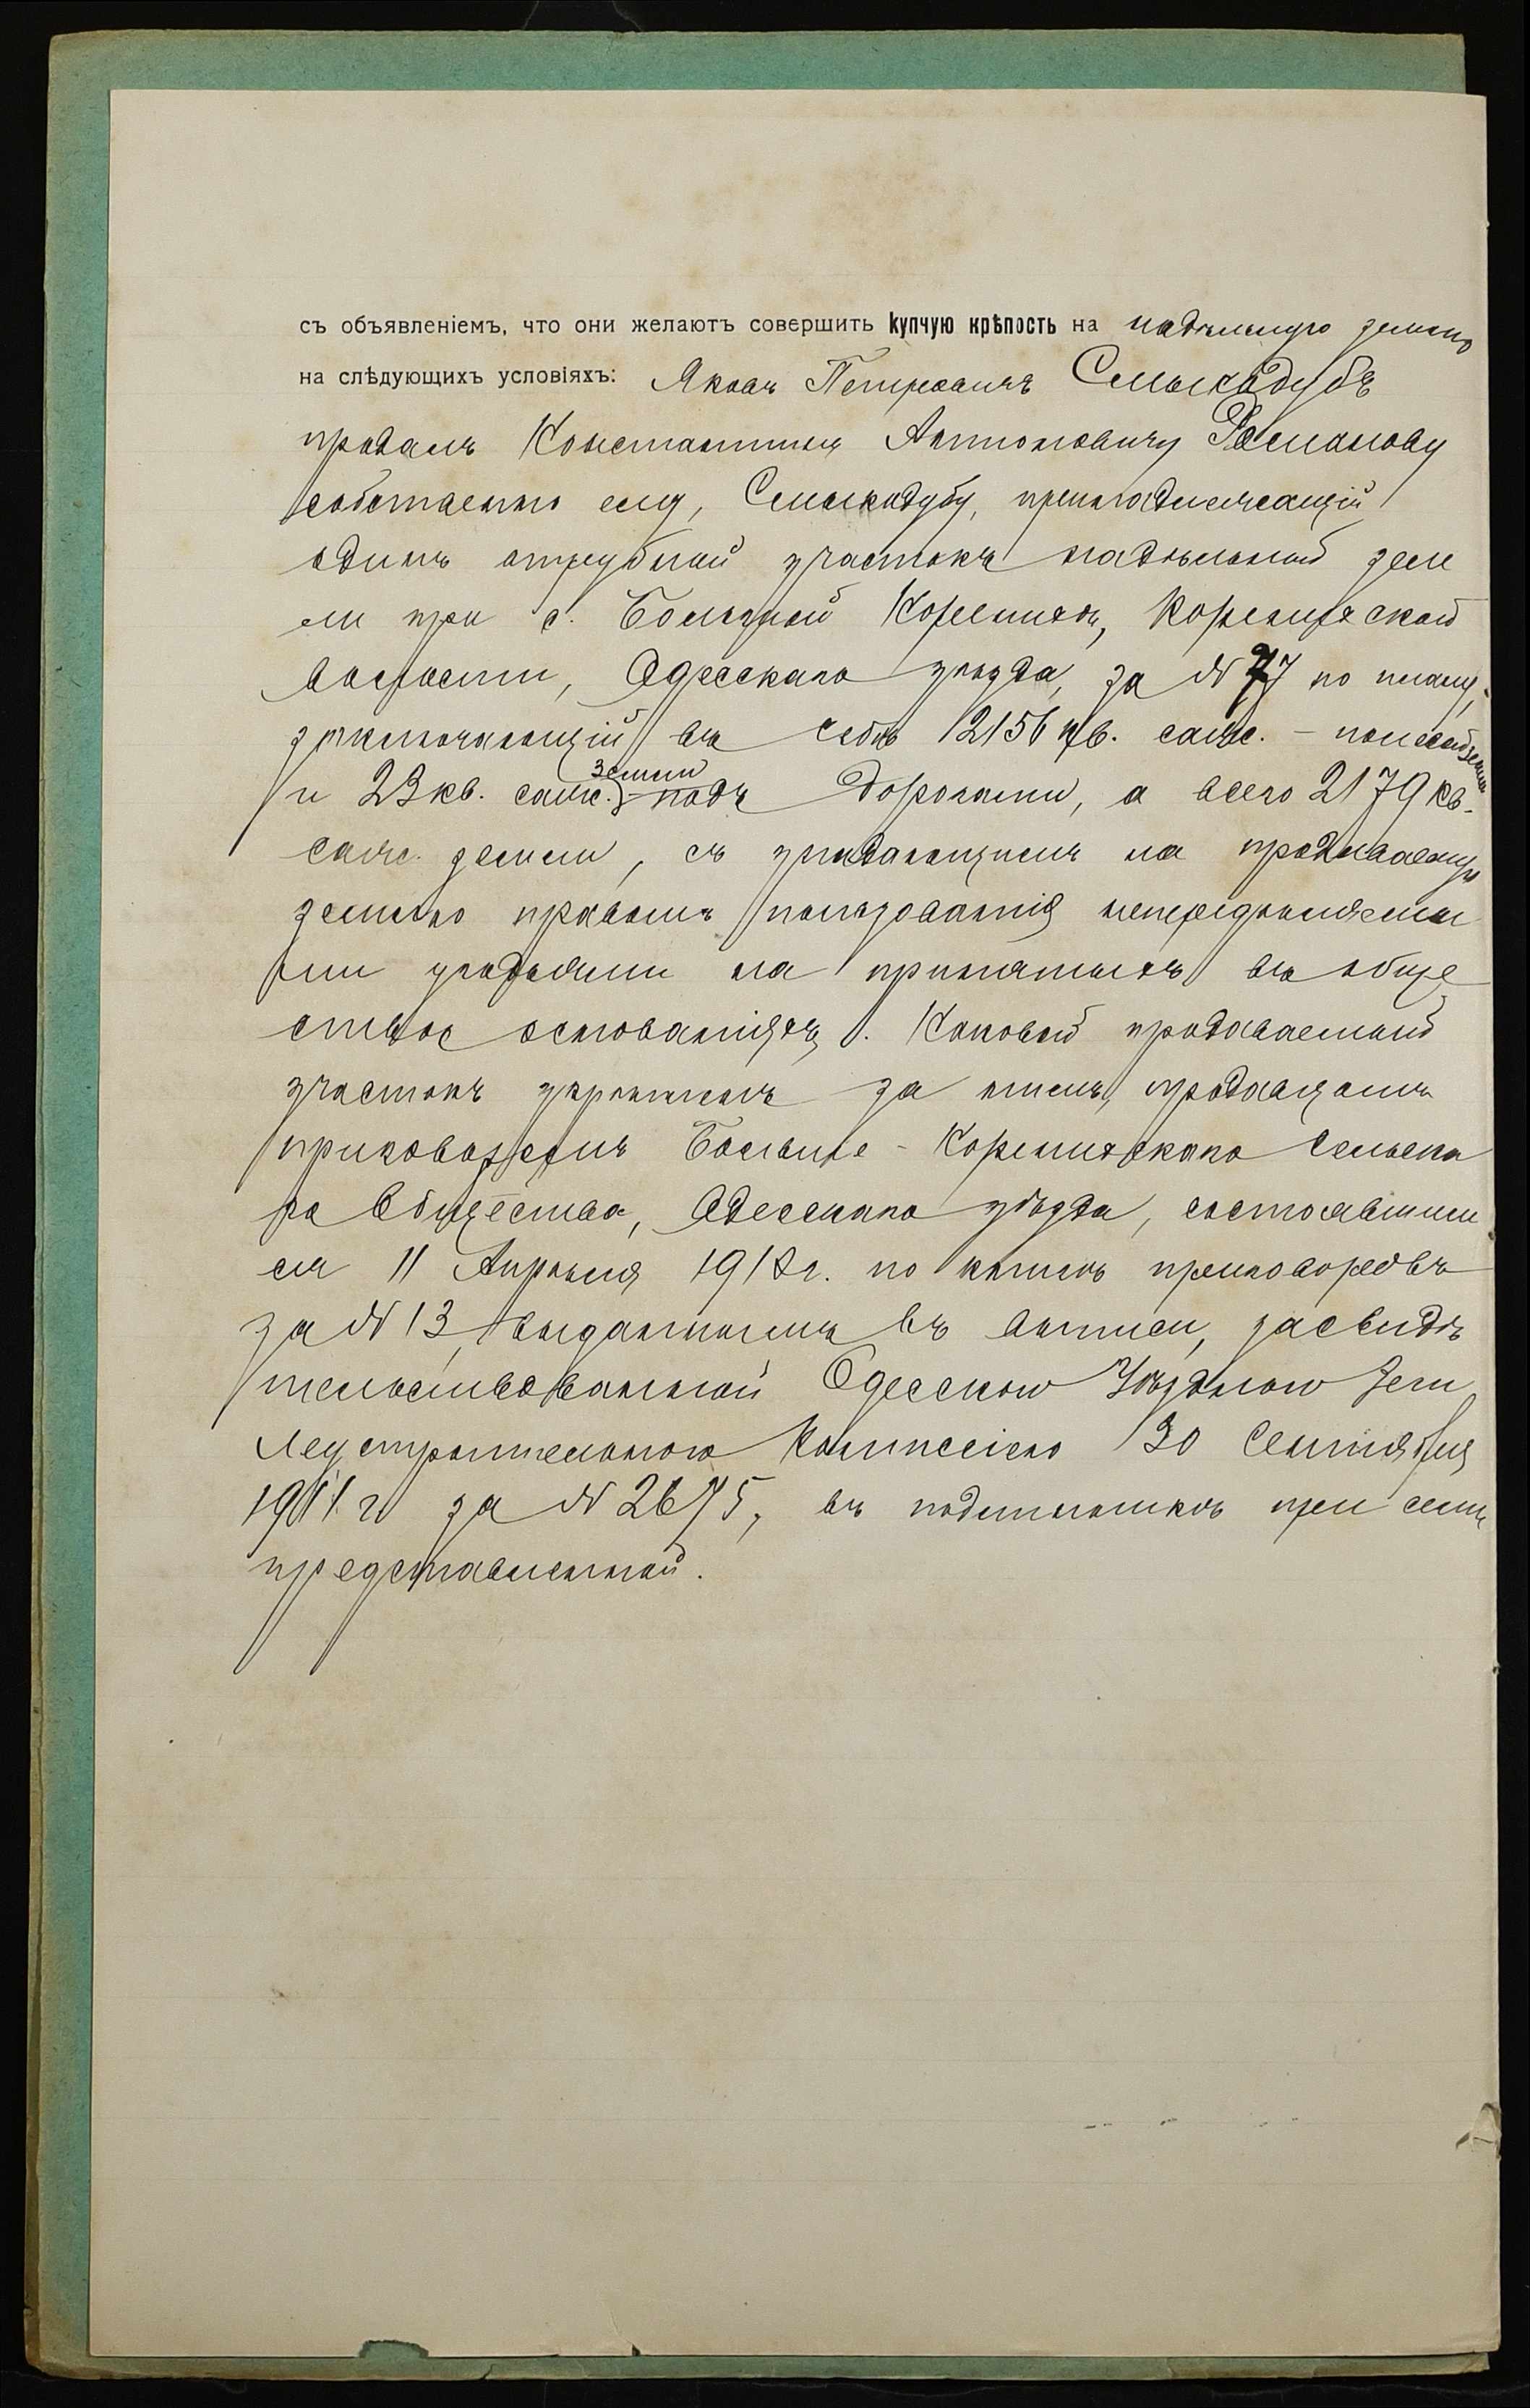 съ объявленіемъ, что они желаютъ совершить купчую крѣпость на надѣльную землю
на слѣдующихъ условіяхъ: Яковъ Петровичъ Смыкодубъ
продалъ Константину Антоновичу Романову
собственно ему, Смыкодубу, принадлежащій
одинъ отрубной участокъ надѣльной зем
ли при с. Большой Коренихѣ, Корениxской
волости, Одесскаго уѣзда, за № 77 по плану,
заключающій въ себѣ 2156 кв. саж. – полевой земли
и 23 кв. саж. земли – подъ дорогами, а всего 2179 кв.
саж. земли, съ упадающимъ на продаваемую
землю правомъ пользованія непередѣляемы
ми угодьями на принятыхъ въ обще
ствѣ основаніяхъ. Каковой продаваемый
участокъ укрѣпленъ за нимъ, продавцомъ
приговоромъ Больше-Коренихскаго сельска
го Общества, Одесскаго уѣзда, состоявшим
ся 11 Апрѣля 1912 г. по книгѣ приговоровъ
за № 13, выданнымъ въ выписи, засвидѣ
тельствованной Одесскою Уѣздною Зем
леустроительною Коммиссіею 30 Сентября
1911 г за № 2675, въ подлинникѣ при семъ
представленной.